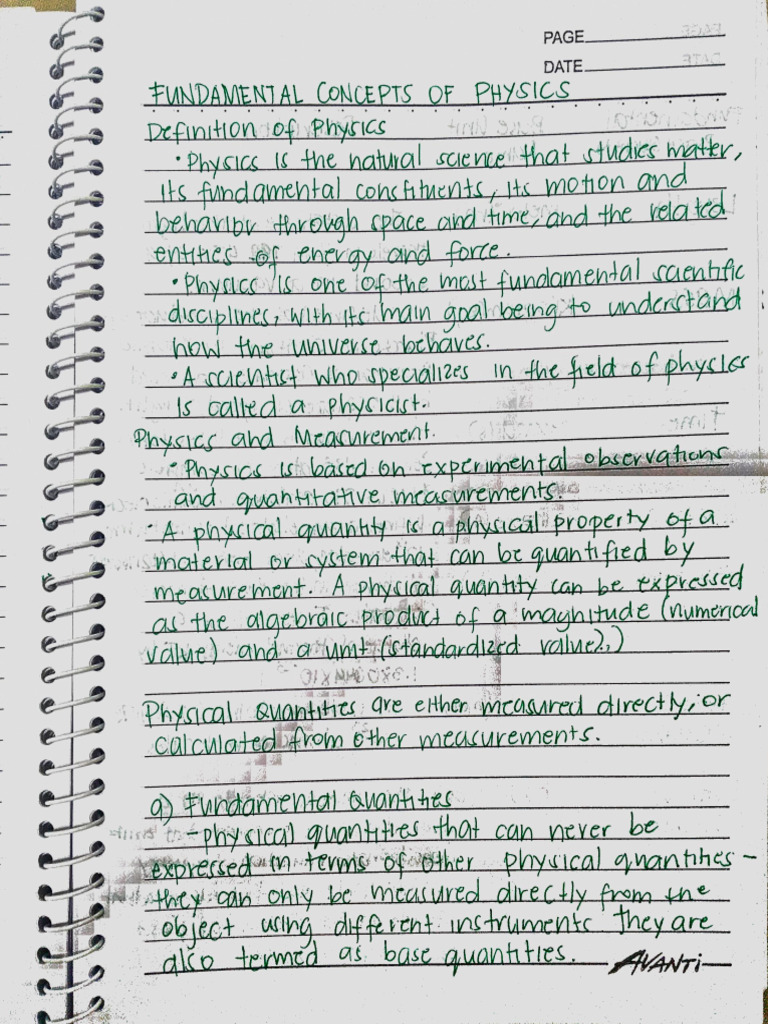 PAGE
DATE
FUNDAMENTAL CONCEPTS OF PHYSICS
Definition of Physics
• Physics is the natural science that studies matter,
its fundamental constituents, its motion and
behavior through space and time, and the related
entities of energy and force.
• Physics is one of the most fundamental scientific
disciplines, with its main goal being to understand
how the universe behaves.
• A scientist who specializes in the field of physics
is called a physicist.
Physics and Measurement.
• Physics is based on experimental observations
and quantitative measurements.
• A physical quantity is a physical property of a
material or system that can be quantified by
measurement. A physical quantity can be expressed
as the algebraic product of a magnitude (numerical
value) and a unit (standardized value).)
Physical Quantities are either measured directly, or
calculated from other measurements.
a) Fundamental Quantities
- physical quantities that can never be
expressed in terms of other physical quantities -
they can only be measured directly from the
object using different instruments they are
also termed as base quantities.
AVANTi